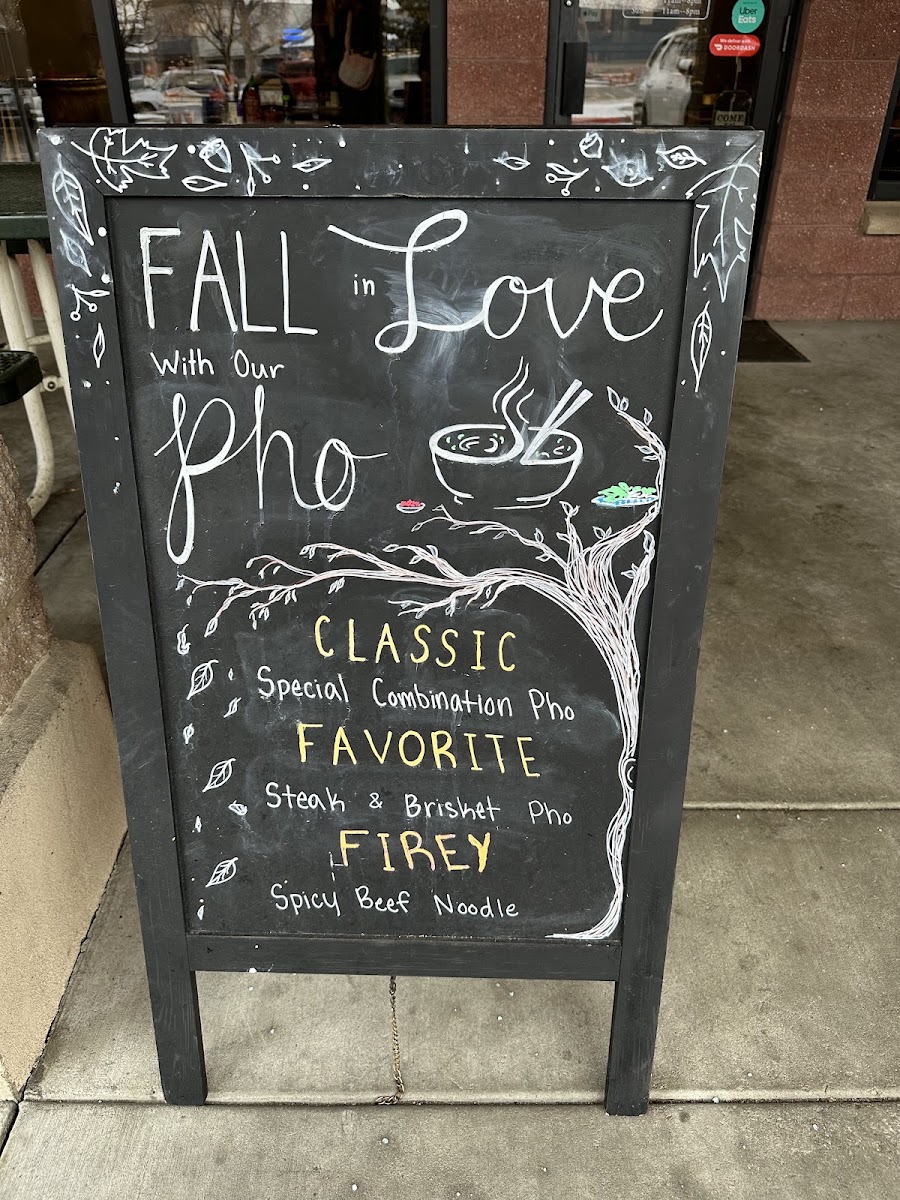 11am--8pm
11am--8pm
Uber
Eats
We deliver with
DOORDASH
COME
FALL in Love
With Our
Pho
CLASSIC
Special Combination Pho
FAVORITE
Steak & Brisket Pho
FIREY
Spicy Beef Noodle